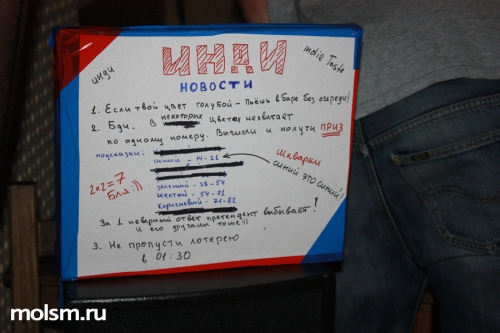 инди
ИНДИ
indie Taste
НОВОСТИ
1. Если твой цвет голубой - Пьёшь в баре без очереди!
2. Бди. В некоторых цветах нехватает
по одному номеру. Вычисли и получи ПРИЗ
подсказки:
синий - 14-28
зелёный - 38-54
жёлтый - 54-71
коричневый - 71-82
шкварки
синий это синий!
2x2=7
Бли:))
За 1 неверный ответ претендент выбывает!
и его друзья тоже:))
3. Не пропусти лотерею
в 01:30
molsm.ru